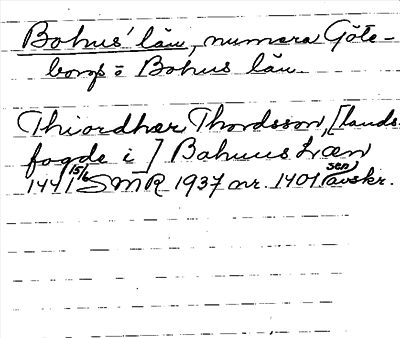 Bohus' län, numera Göte-
borgs o Bohus län
Thiordhær Thordsson, [lands
fogde i] Bahuus Læn
1441 15/6 SMR 1937 nr. 1401 sen avskr.